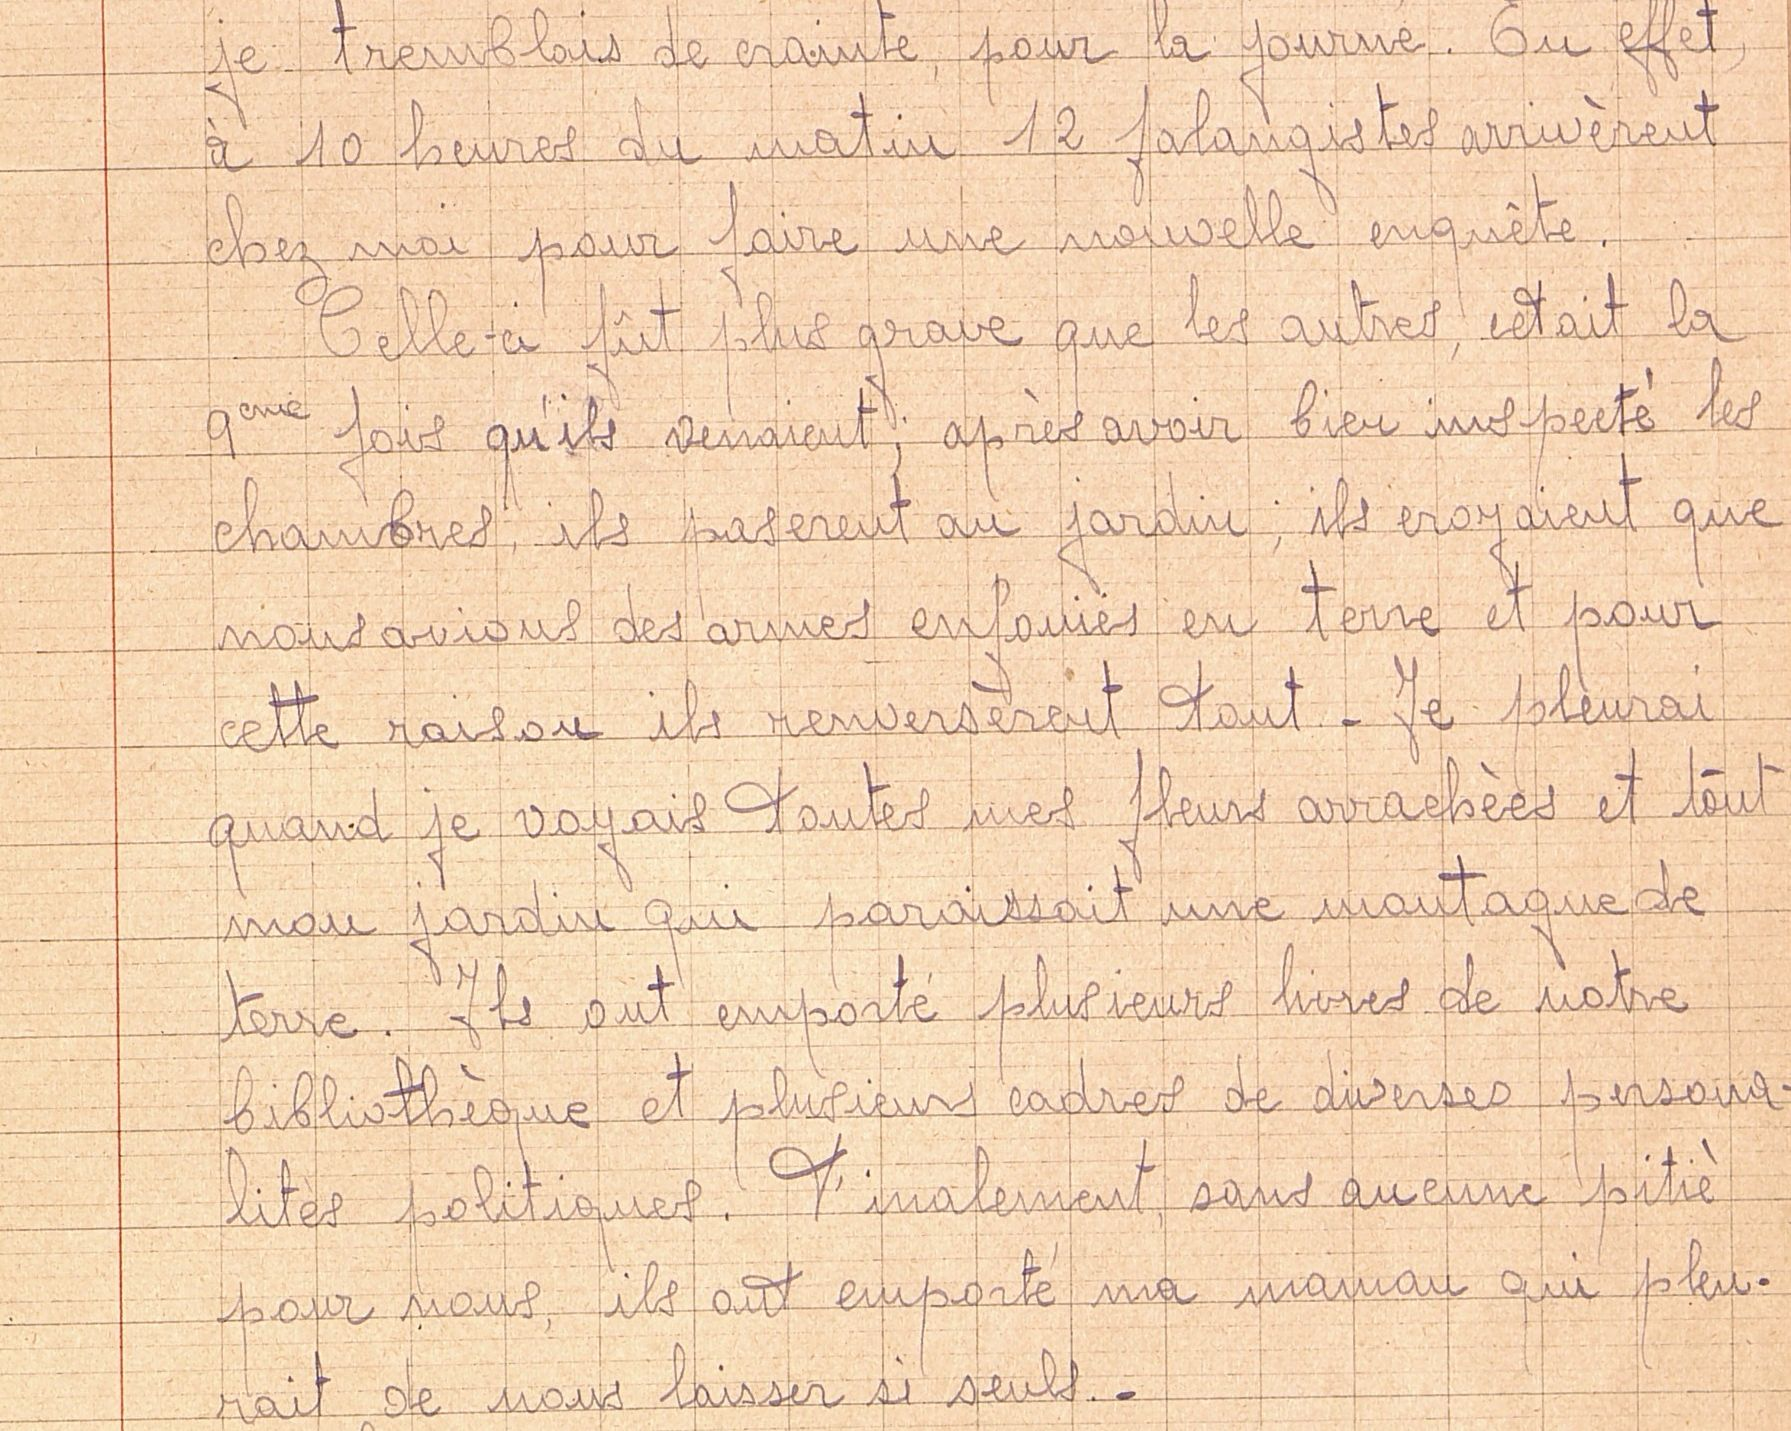 je tremblais de crainte, pour la journé. En effet,
à 10 heures du matin 12 falangistes arrivèrent
chez moi pour faire une nouvelle enquête.
Celle-ci fût plus grave que les autres, cétait la
9eme fois qu'ils venaient; après avoir bien inspecté les
chambres, ils paserent au jardin; ils croyaient que
nous avions des armes enfouiés en terre et pour
cette raison ils renversèrent tout - Je pleurai
quand je voyais toutes mes fleurs arrachèes et tout
mon jardin qui paraissait une montagne de
terre. Ils ont emporté plusieurs livres de notre
bibliothèque et plusieurs cadres de diverses persona-
litès politiques. Finalement, sans aucune pitiè
pour nous, ils ont emporté ma maman qui pleu-
rait de nous laisser si seuls.-